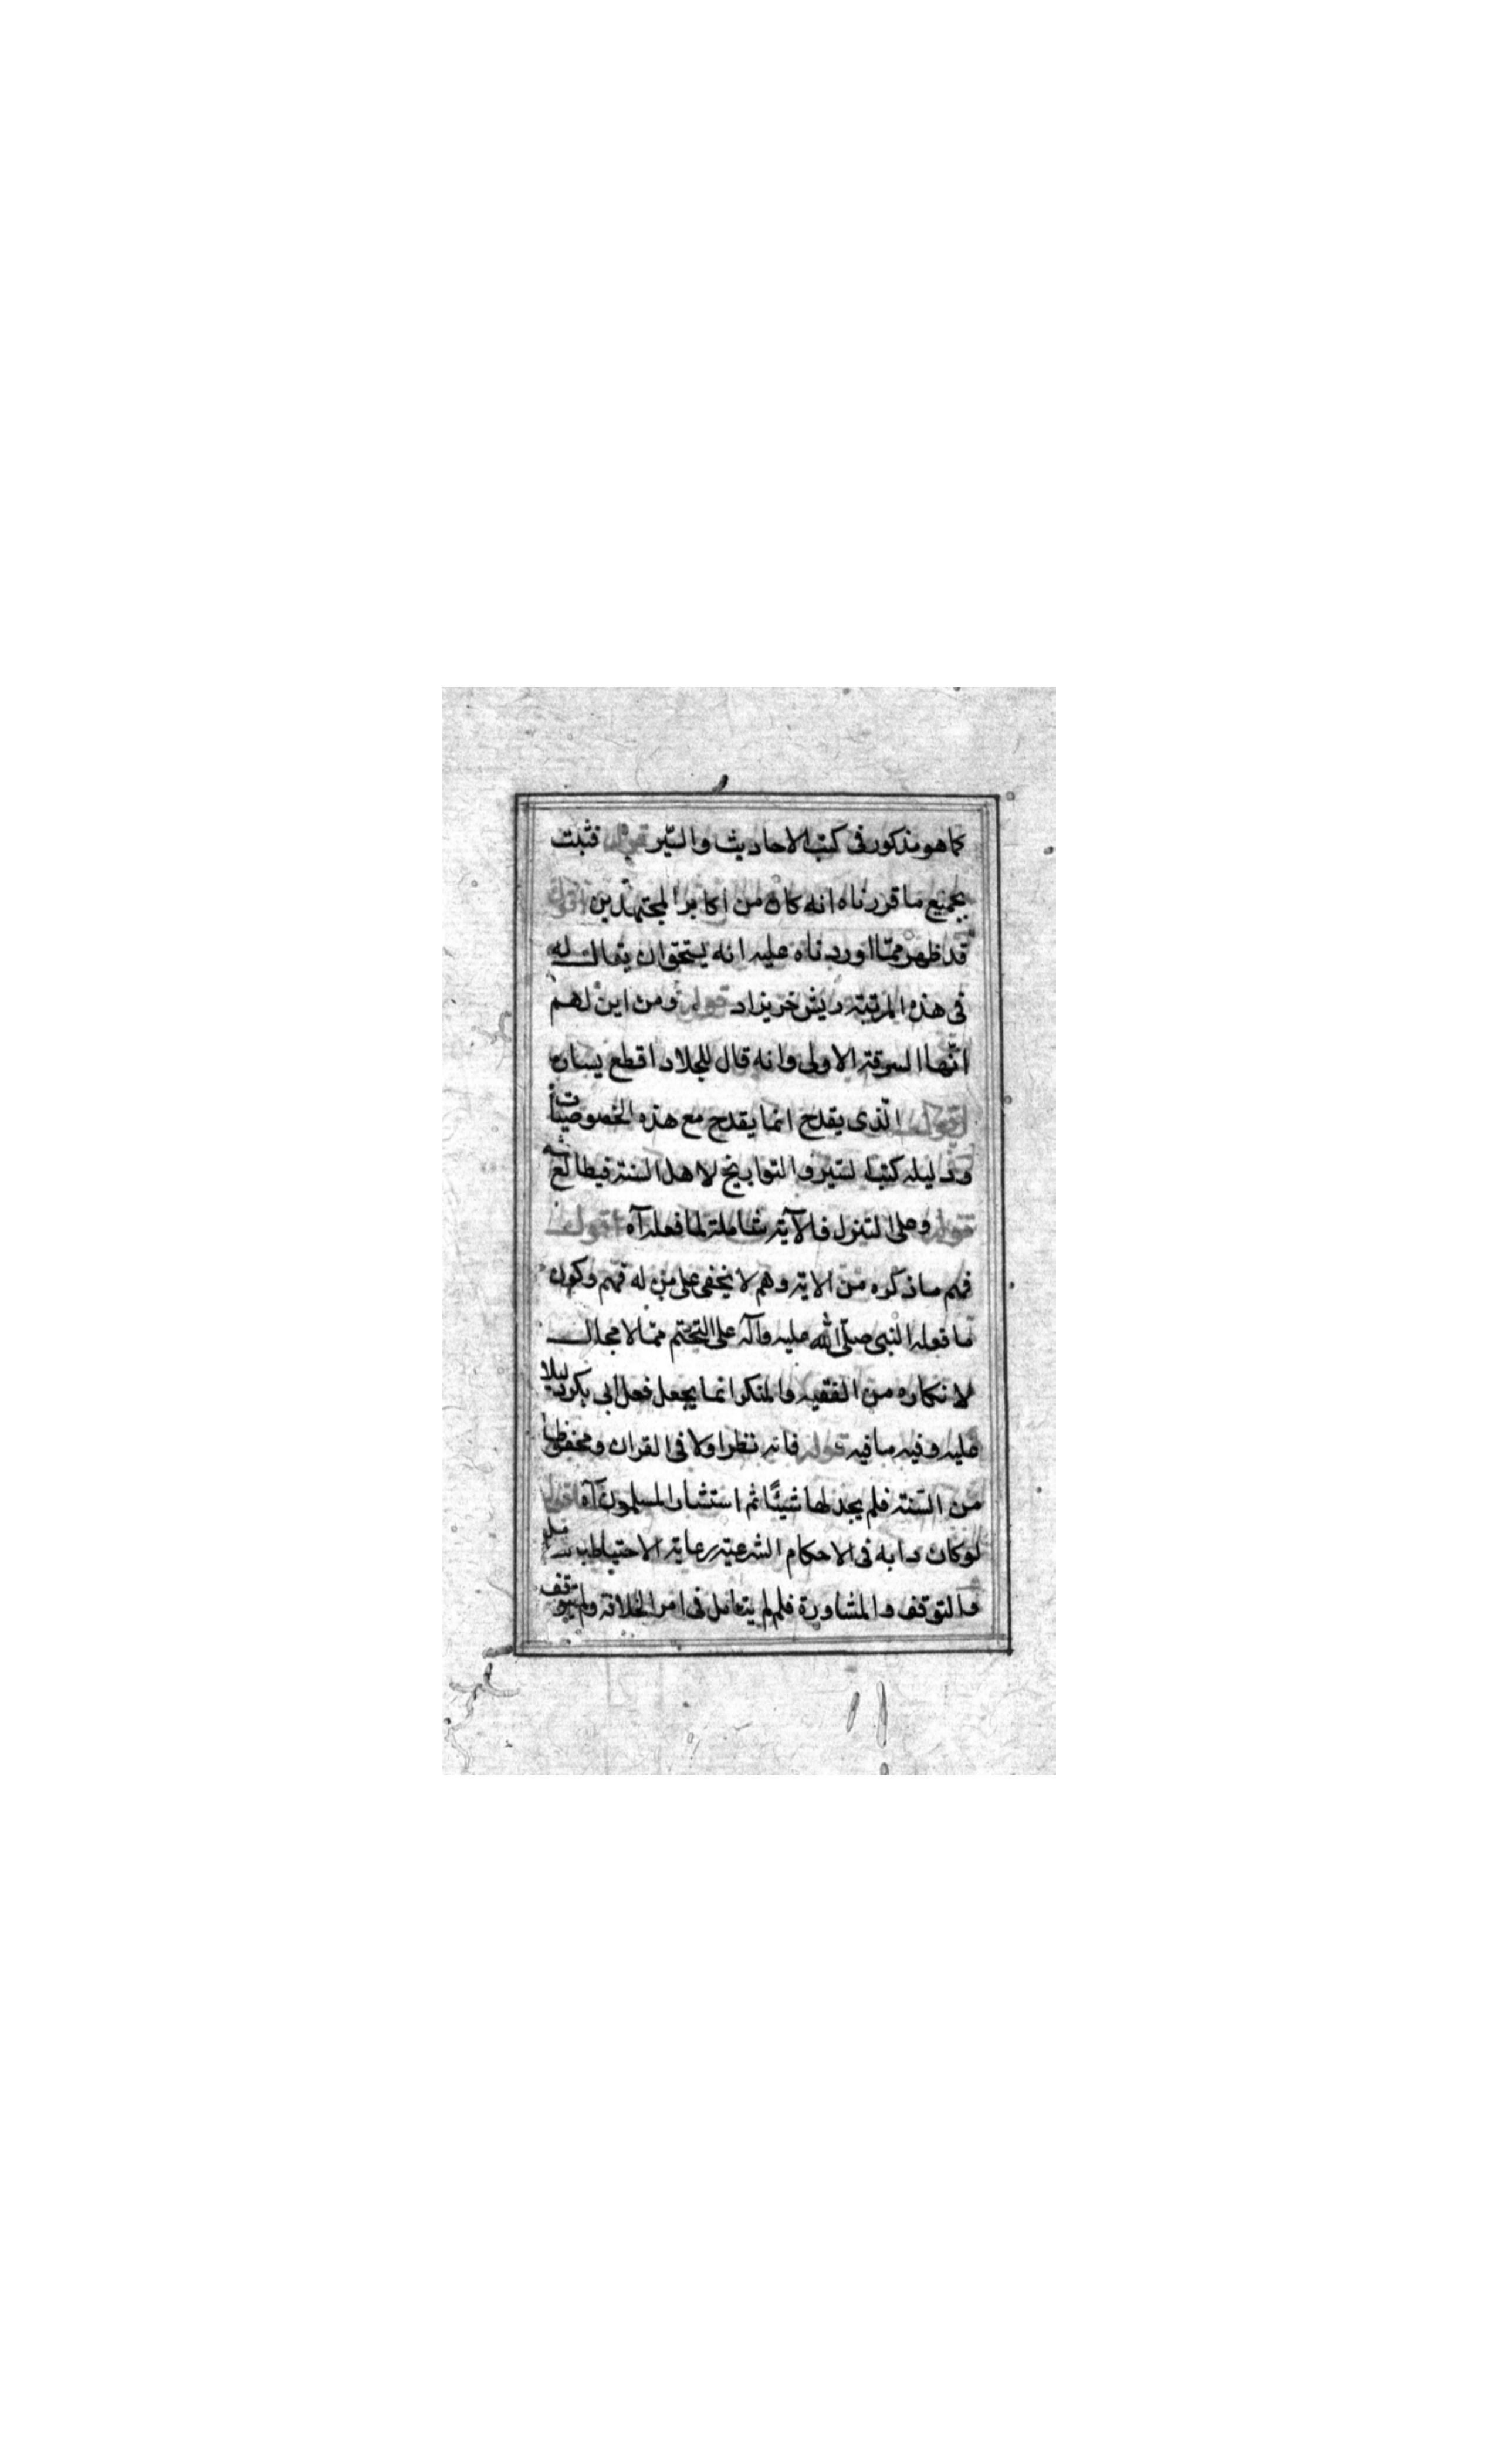 كما هو مذكور فى كتب الاحاديث والسّير قوله فثبت
بجميع ما قررناه انه كان من اكابر المجتهدين اقول
قد ظهر ممّا اوردناه عليه انه يستحق ان يقال له
فى هذه المرتبة ريش خر بزاد قوله ومن اين لهم
انّها السرقة الاولى وانه قال للجلاد اقطع يساره
اقول الّذى يقدح انما يقدح مع هذه الخصوصيات
ودليله كتب السّير والتواريخ لاهل السنة فيطالع ثمه
قوله وعلى التنزل فالآية شاملة لما فعله آه اقول
فهم ما ذكره من الاية وهم لا يخفى على من له فهم وكون
ما فعله النبى صلّى الله عليه وآله على التحتم ممّا لا مجال
لانكاره من الفقيه والمنكر انما يجعل فعل ابى بكر دليلا
عليه وفيه ما فيه قوله فانه نظر اولا فى القران ومحفوظاته
من السّنة فلم يجد لها شيئًا ثم استشار المسلمون آه اقول
لو كان دابه فى الاحكام الشرعية رعاية الاحتياط
والتوقف والمشاورة فلم لم يتعامل فى امر الخلافة ولم يتوقف